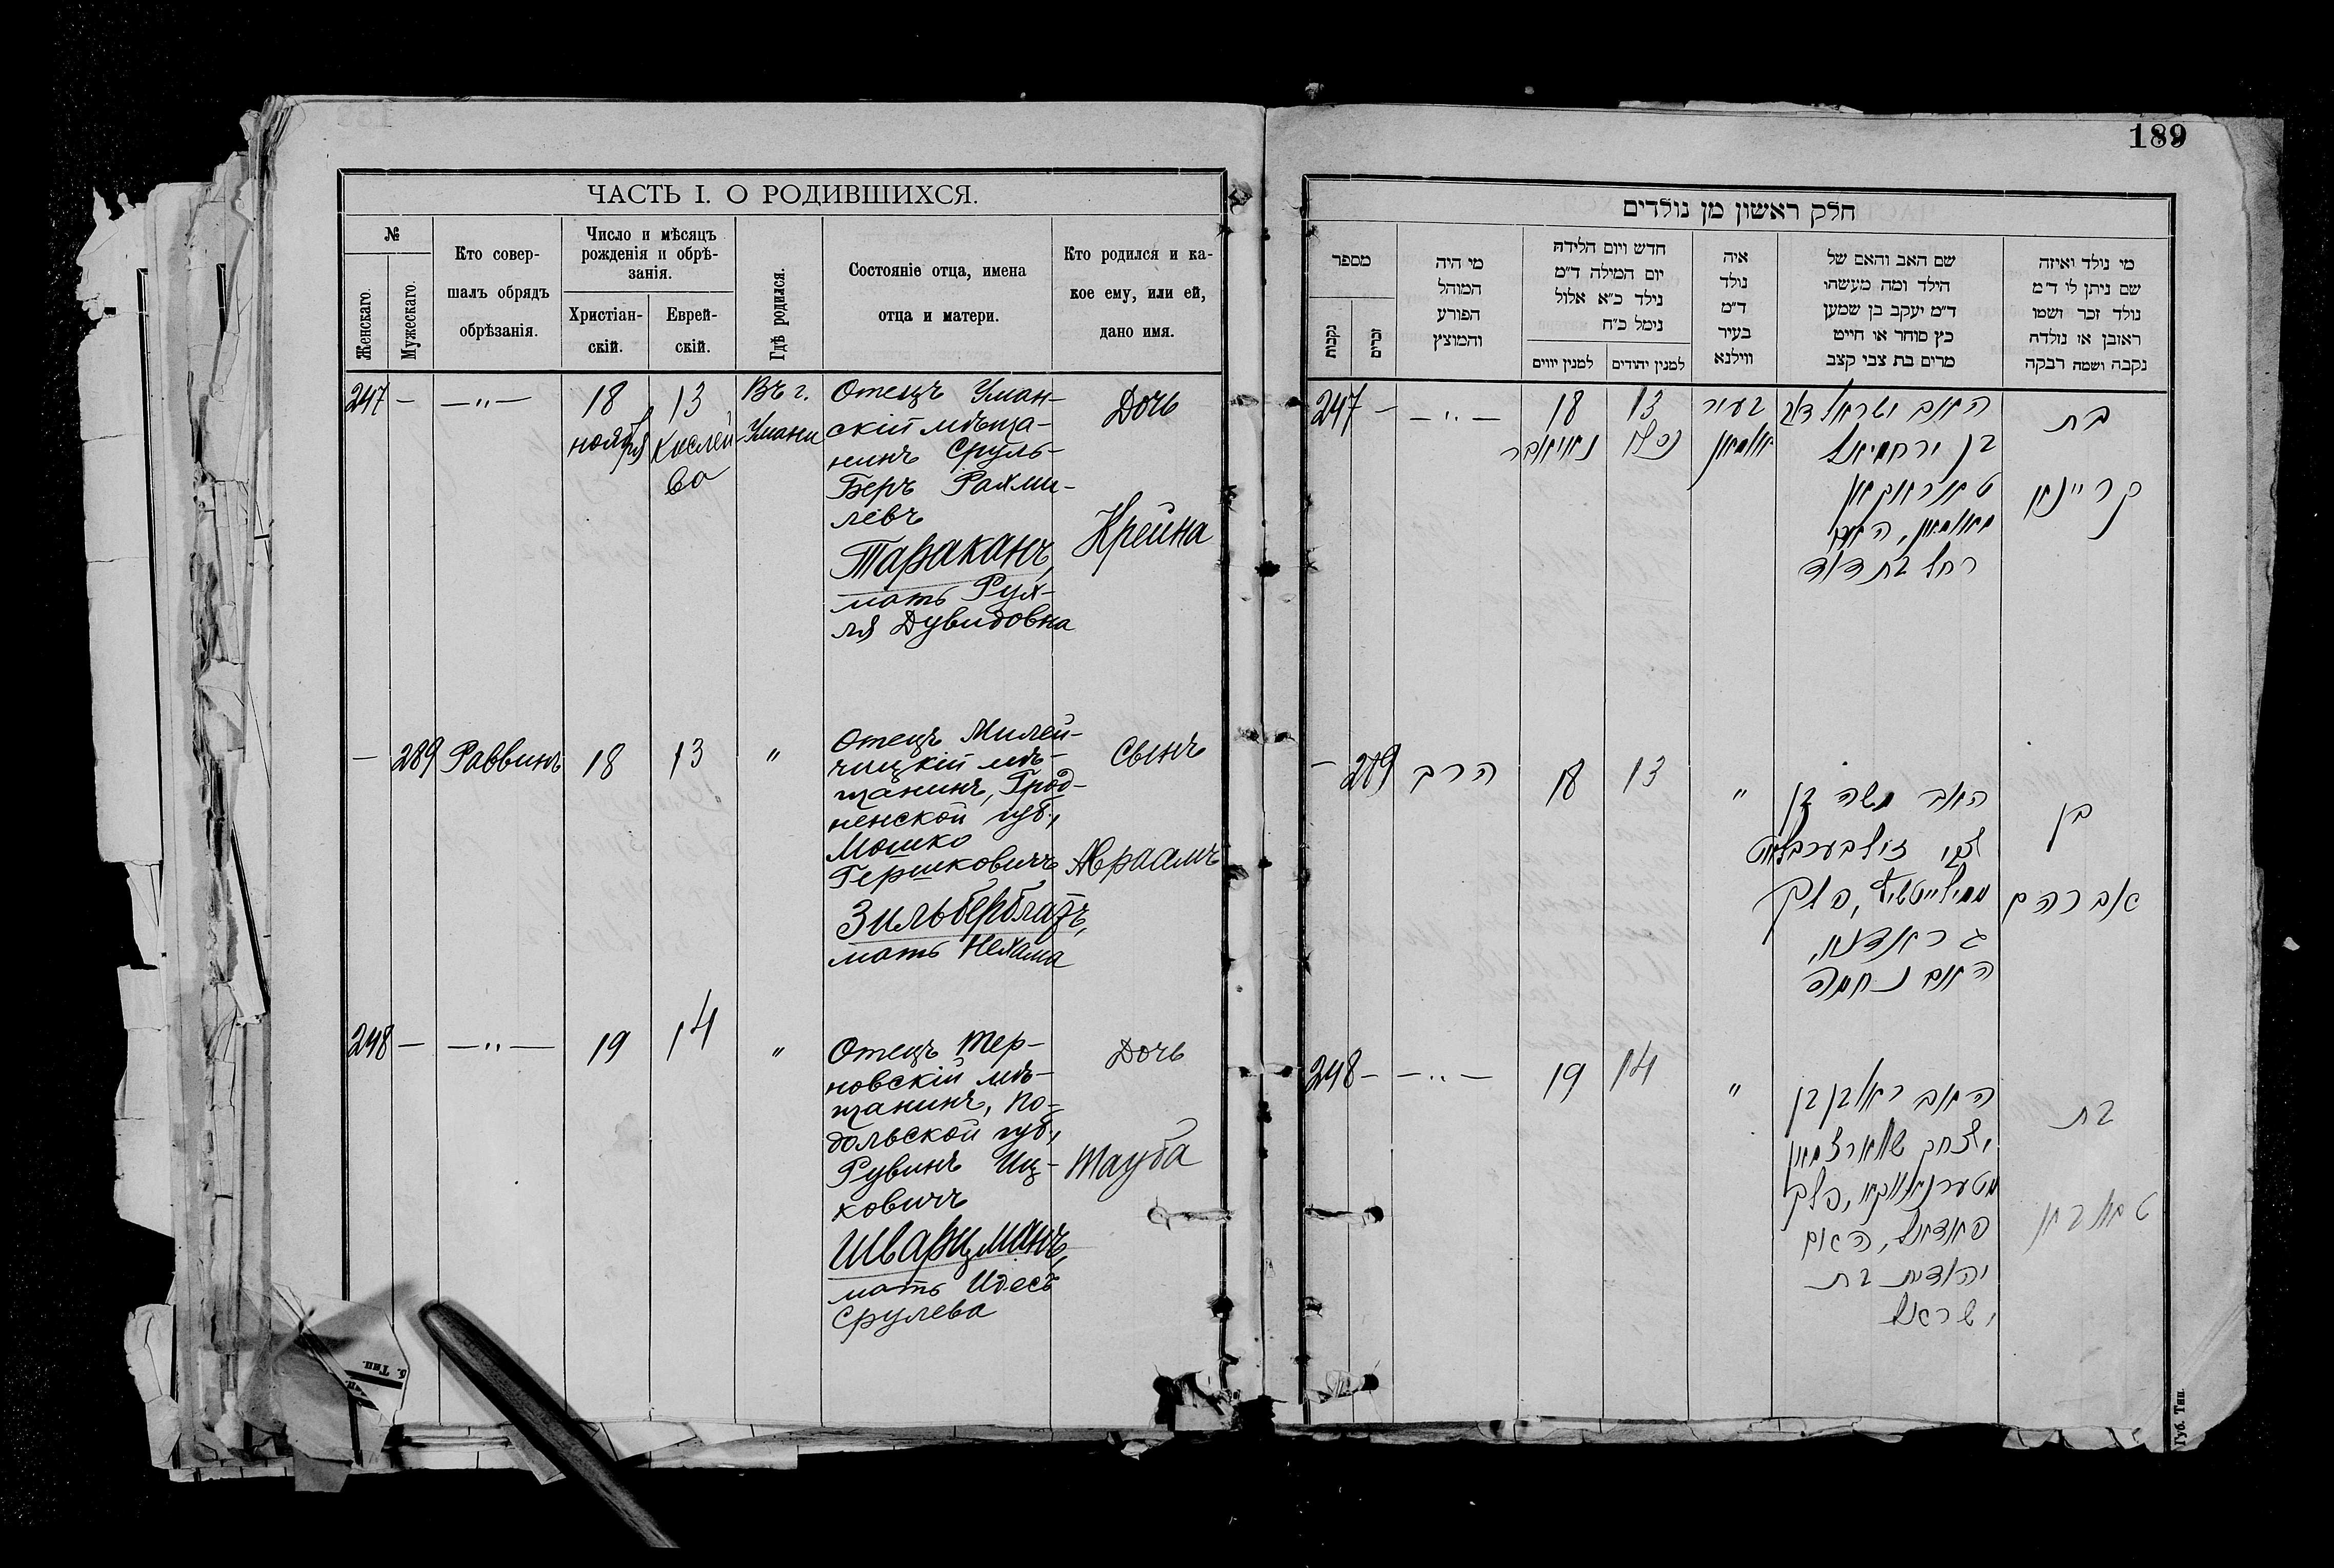 189
ЧАСТЬ I. О РОДИВШИХСЯ.
№
Женскаго.
Мужескаго.
Кто совер-
шалъ обрядъ
обрѣзанія.
Число и мѣсяцъ
рожденія и обрѣ-
занія.
Христіан-
скій.
Еврей-
скій.
Гдѣ родился.
Состояніе отца, имена
отца и матери.
Кто родился и ка-
кое ему, или ей,
дано имя.
247 — —"—
18
ноября
13
Кислей-
ва
Въ г.
Умани
Отецъ Уман-
скій мѣща-
нинъ Сруль-
Беръ Рахми-
левъ
Тараканъ,
мать Рух-
ля Дувидовна
Дочь
Крейна
— 289 Раввинъ 18 13 "
Отецъ Милей-
чицкій мѣ-
щанинъ, Грод-
ненской губ.,
Мошко
Гершковичъ
Зильберблатъ,
мать Нехама
Сынъ
Авраамъ
248 — —"— 19 14 "
Отецъ Тер-
новскій мѣ-
щанинъ, По-
дольской губ.,
Рувинъ Иц-
ковичъ
Шварцманъ,
мать Идесъ
Срулева
Дочь
Тауба
חלק ראשון מן נולדים
מספר
נקבות
זכרים
מי היה
המוהל
הפורע
והמוצץ
חדש ויום הלידה
יום המילה ד"מ
נילד כ"א אלול
נימל כ"ח
למנין יווים
למנין יהודים
איה
נולד
ד"מ
בעיר
ווילנא
שם האב והאם של
הילד ומה מעשהו
ד"מ יעקב בן שמען
כץ סוחר או חייט
מרים בת צבי קצב
מי נולד ואיזה
שם ניתן לו ד"מ
נולד זכר ושמו
ראובן או נולדה
נקבה ושמה רבקה
247 — —"—
18
נאיאבר
13
כסלו
בעיר
אומאן
האב ישראל דב
בן ירחמיאל
טאראקאן
מאומאן, האם
רחל בת דוד
בת
קריינא
— 289 הרב 18 13 "
האב משה בן
צבי זילבערבלאט
ממילייטשיץ, פלך
גראדנא,
האם נחמה
בן
אברהם
248 — —"— 19 14 "
האב ראובן בן
יצחק שווארצמאן
מטערנאווקא, פלך
פאדאל, האם
יהודית בת
ישראל
בת
טאובא
Губ. Тип.